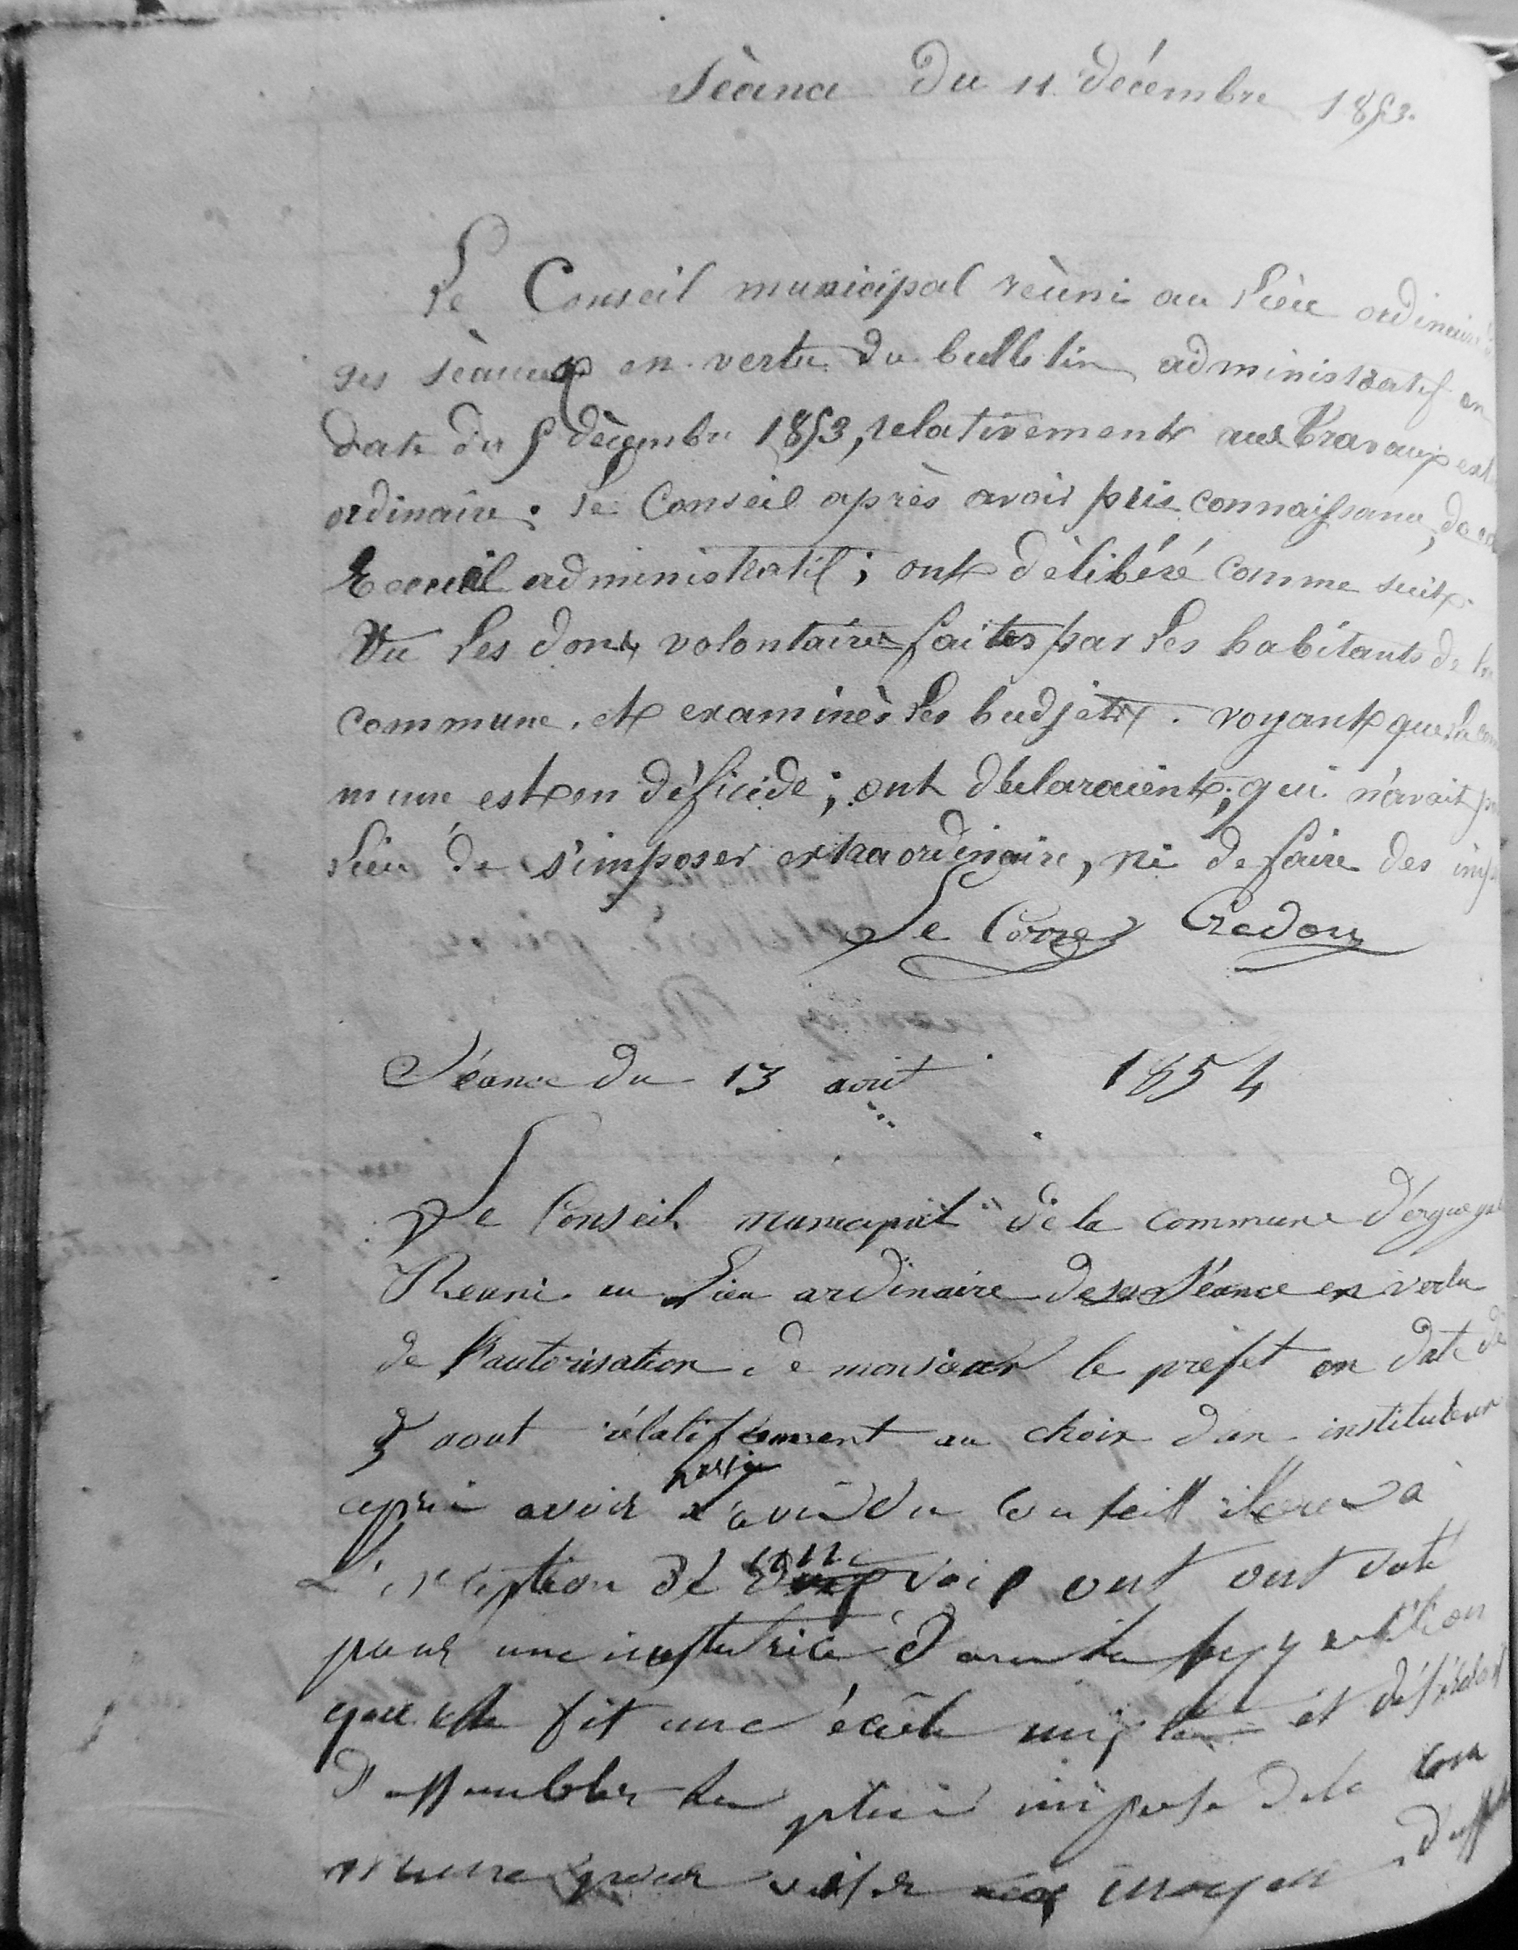 Séance Du 11 décembre 1853.
Le Conseil municipal rèuni au Lieu ordinaire
ses séances en vertu du bulletin administratif en
date du 5 décembre 1853, relativement aux travaux ext
ordinaire. Le Conseil après avoir pris connaissance, de ce
Receuil administratif; ont délibéré comme suit.
Vu Les dons volontaires faites par Les habitants de la
commune, et examinès Les budjets. voyant que La com
mune est en déficide; ont déclaraient; qui n'avait pas
Lieu de s'imposer extraordinaire, ni de faire des imp
Le Corre Credou
Séance du 13 aout 1854
Le Conseil municipal de la commune d'ergué ga
Reuni au Lieu ordinaire de ses Séance en vertu
de l'autorisation de monsieur le prefet en date du
5 aout rélatifsement au choix d'un instituteur
après avoir l'avis du Conseill à
L'exception de voix ont ont voté
pour une institutrice
que elle fit une école mixte et
D'assembler les plus imposé de la com
mune pour aux moyen